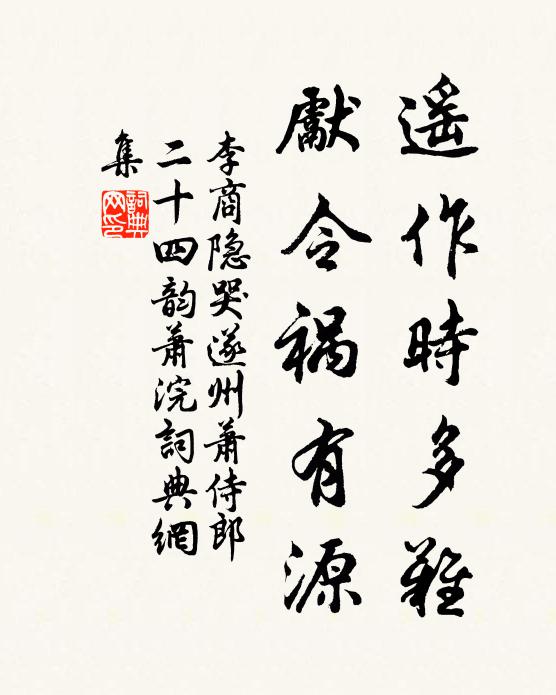 遥作時多難
獻令禍有源
李商隐哭遂州蕭侍郎
二十四韵蕭浣詞典網
集
詞典
网印